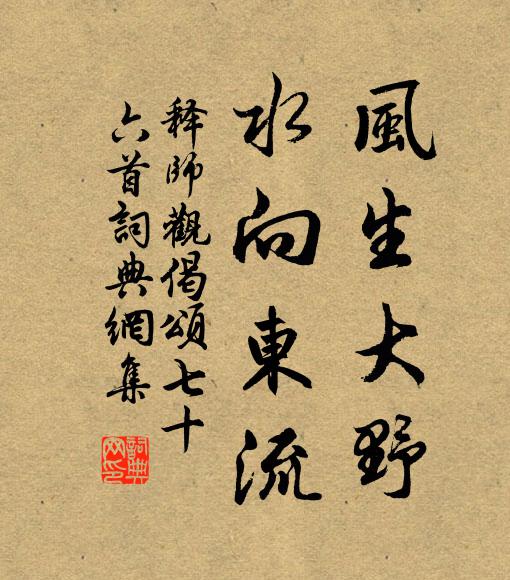 風生大野
水向東流
释師觀偈頌七十
六首詞典網集
詞典
网印